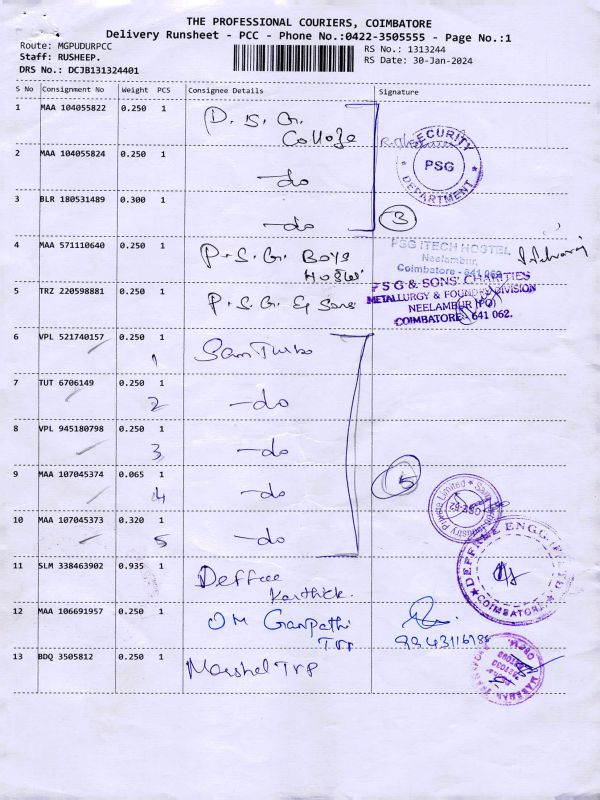 THE PROFESSIONAL COURIERS, COIMBATORE
Delivery Runsheet - PCC - Phone No.:0422-3505555 - Page No.:1
Route: MGPUDURPCC
RS No.: 1313244
Staff: RUSHEEP.
RS Date: 30-Jan-2024
DRS No.: DCJB131324401
S No Consignment No Weight PCS Consignee Details Signature
1 MAA 104055822 0.250 1 P.S.G. College
SECURITY DEPARTMENT PSG
2 MAA 104055824 0.250 1 -do
3 BLR 180531489 0.300 1 -do 3
4 MAA 571110640 0.250 1 P.S.G. Boys Hostel
PSG ITECH HOSTEL
Neelambur,
Coimbatore - 641 062
5 TRZ 220598881 0.250 1 P.S.G. & Sons
P S G & SONS' CHARITIES
METALLURGY & FOUNDRY DIVISION
NEELAMBUR (PO)
COIMBATORE - 641 062.
6 VPL 521740157 0.250 1 Sam Turbo
1
7 TUT 6706149 0.250 1 -do
2
8 VPL 945180798 0.250 1 -do
3
9 MAA 107045374 0.065 1 -do 5
4
10 MAA 107045373 0.320 1 -do
5
11 SLM 338463902 0.935 1 Deffree Karthick.
DEFFREE ENGG. COIMBATORE
12 MAA 106691957 0.250 1 OM Ganpathi Trp
13 BDQ 3505812 0.250 1 Marshel Trp